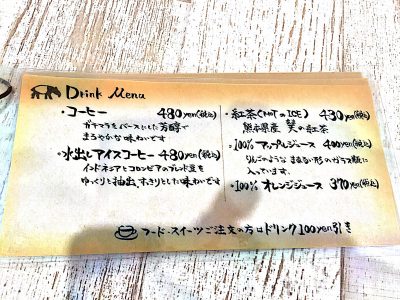 Drink Menu
・コーヒー 480yen(税込)
ガテマラをベースにした芳醇で
まろやかな味わいです
・水出しアイスコーヒー 480yen(税込)
インドネシアとコロンビアのブレンド豆を
ゆっくりと抽出、すっきりとした味わいです
・紅茶(HOT or ICE) 430yen(税込)
熊本県産 の紅茶
・100%アップルジュース 400yen(税込)
りんごのような まるい形のガラス瓶に
入っています。
・100% オレンジジュース 370yen(税込)
フード・スイーツご注文の方はドリンク100yen引き